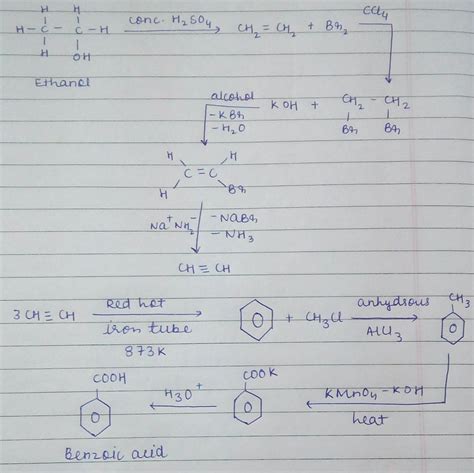 H H
H - C - C - H conc. H2SO4 CH2 = CH2 + Br2 CCl4
H OH
Ethanol
alcohol KOH + CH2 - CH2
- KBr Br Br
- H2O
H H
C = C
H Br
Na+NH2- - NaBr
- NH3
CH ≡ CH
3 CH ≡ CH Red hot iron tube 873K + CH3Cl anhydrous AlCl3 CH3
COOH H3O+ COOK KMnO4 - KOH heat
Benzoic acid